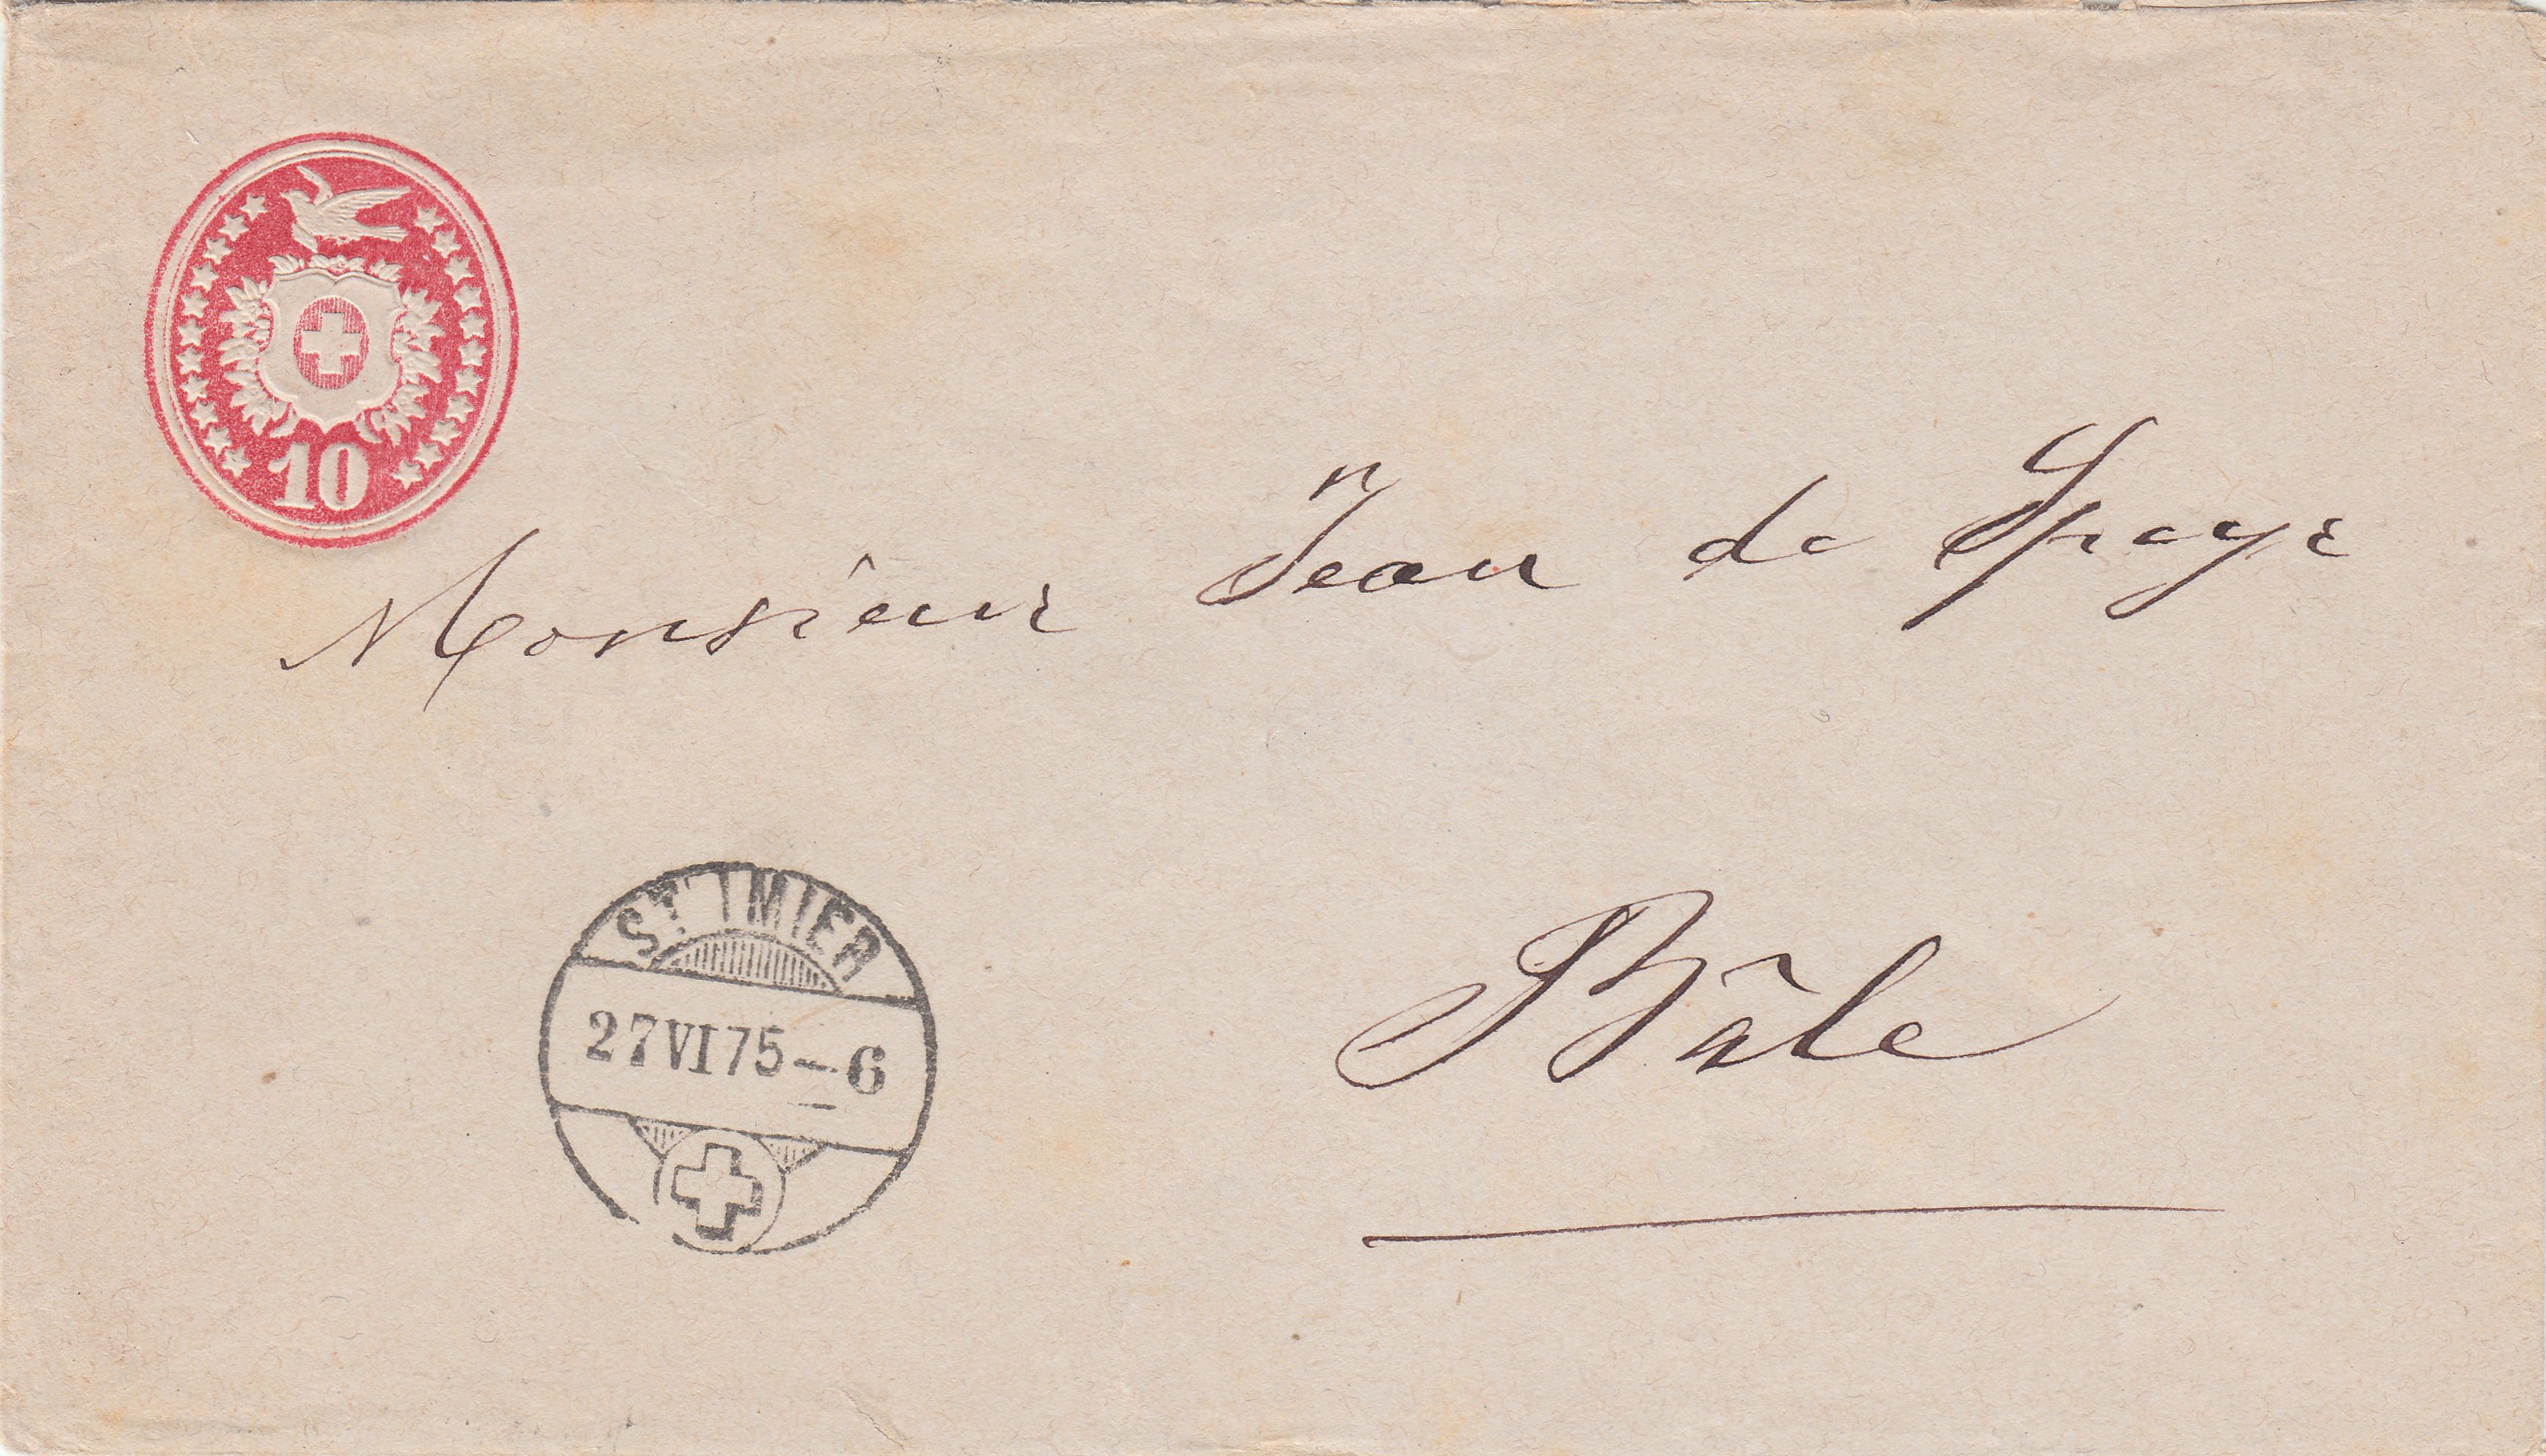 10
Monsieur Jean de Speyr
Bâle
ST IMIER
27 VI 75 – 6